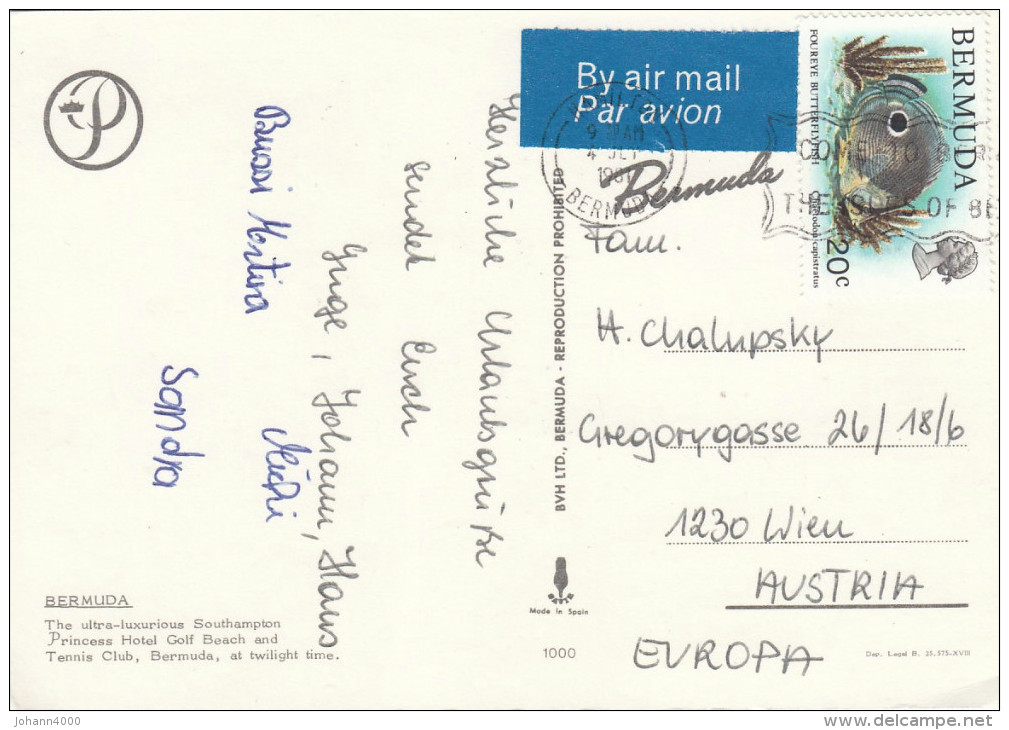 By air mail
Par avion
BERMUDA
FOUREYE BUTTERFLYFISH
Chaetodon capistratus
20c
1981
BERMUDA
COME TO
THE ISLES OF BE
Bermuda
P
Herzliche Urlaubsgrüße
sendet Euch
Inge, Johann, Hans
Bussi Martina
Michi
Sandra
BVH LTD., BERMUDA - REPRODUCTION PROHIBITED
Fam.
H. Chalupsky
Gregorygasse 26/18/6
1230 Wien
AUSTRIA
EUROPA
BERMUDA
The ultra-luxurious Southampton
Princess Hotel Golf Beach and
Tennis Club, Bermuda, at twilight time.
Made in Spain
1000
Dep. Legal B. 25.575-XVIII
johann4000
delcampe.net